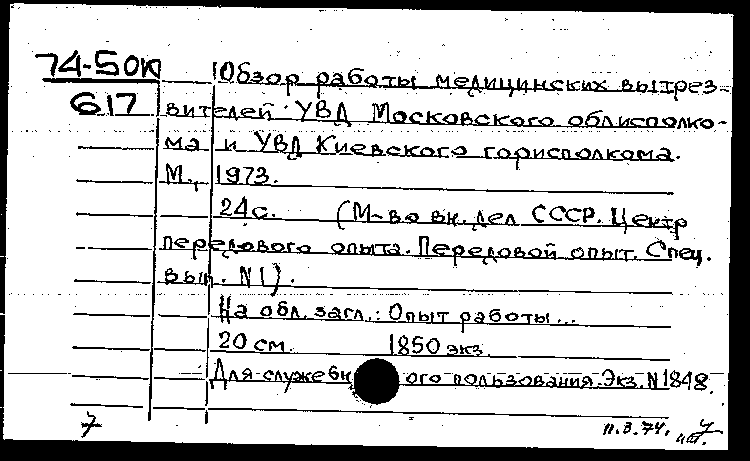 74-5ОК
617
Обзор работы медицинских вытрез-
вителей УВД Московского облисполко-
ма и УВД Киевского горисполкома.
М., 1973.
24с. (М-во вн. дел СССР. Центр
передового опыта. Передовой опыт. Спец.
вып. N1).
На обл. загл.: Опыт работы...
20 см. 1850 экз.
Для служебного пользования. Экз. N1848.
7
11.3.74.